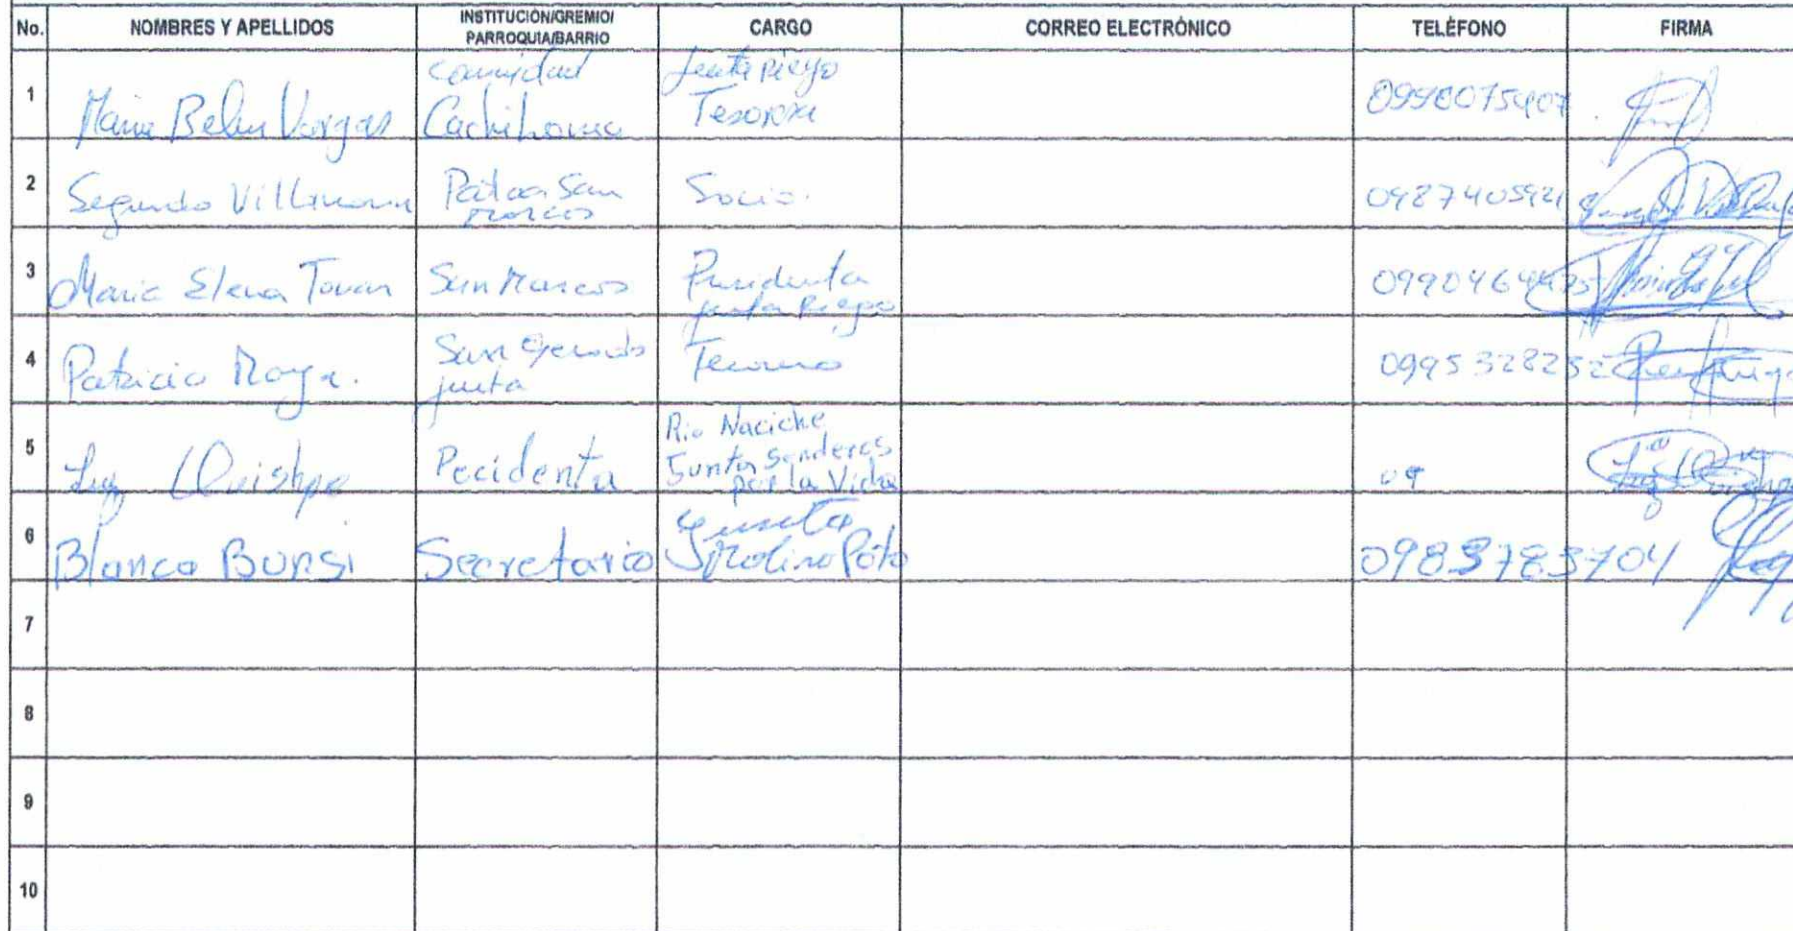 No. NOMBRES Y APELLIDOS INSTITUCIÓN/GREMIO/ PARROQUIA/BARRIO CARGO CORREO ELECTRÓNICO TELÉFONO FIRMA
1 Maria Belen Vargas Cachihuma Junta Riego 0998075407
2 Segundo Villamarin San Marcos Socio. 0987405921
3 Maria Elena Tovar San Marcos Presidenta junta Riego
4 Patricio Moya. San Gerardo junta Tesorero 0995328252
5 Luz Quishpe Pecidenta Rio Naciche Junta Senderos por la Vida 09
6 Blanca Bunsi Secretaria Junta Molino Poto 0983783704
7
8
9
10